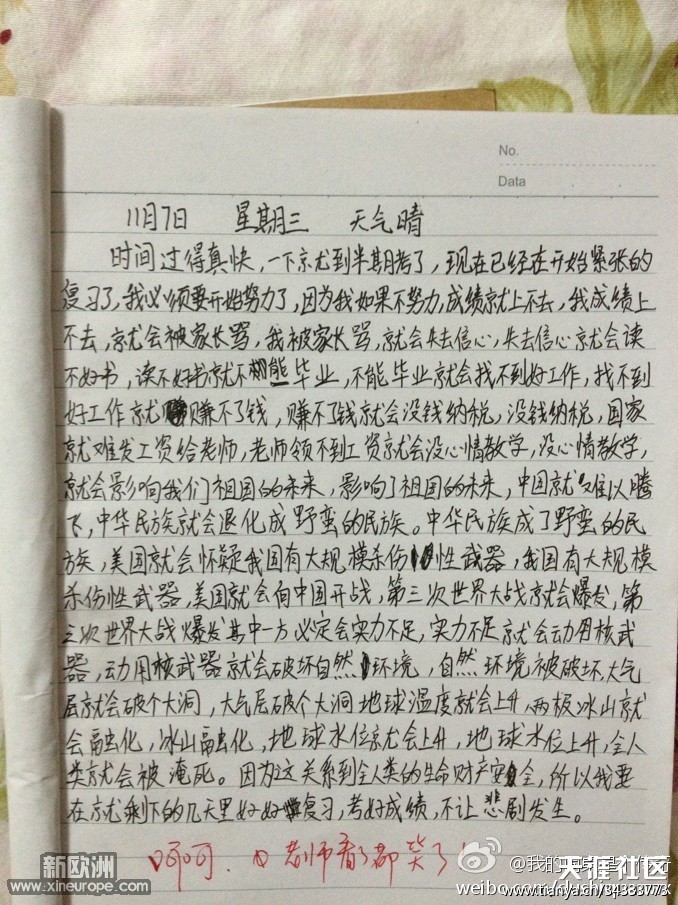 No.
Data
11月7日 星期三 天气晴
时间过得真快，一下就到半期考了，现在已经在开始紧张的
复习了，我必须要开始努力了，因为我如果不努力，成绩就上不去，我成绩上
不去，就会被家长骂，我被家长骂，就会失去信心，失去信心就会读
不好书，读不好书就不能毕业，不能毕业就会找不到好工作，找不到
好工作就赚不了钱，赚不了钱就会没钱纳税，没钱纳税，国家
就难发工资给老师，老师领不到工资就会没心情教学，没心情教学，
就会影响我们祖国的未来，影响了祖国的未来，中国就难以腾
飞，中华民族就会退化成野蛮的民族。中华民族成了野蛮的民
族，美国就会怀疑我国有大规模杀伤性武器，我国有大规模
杀伤性武器，美国就会向中国开战，第三次世界大战就会爆发，第
三次世界大战爆发其中一方必定会实力不足，实力不足就会动用核武
器，动用核武器就会破坏自然环境，自然环境被破坏，大气
层就会破个大洞，大气层破个大洞地球温度就会上升，两极冰山就
会融化，冰山融化，地球水位就会上升，地球水位上升，全人
类就会被淹死。因为这关系到全人类的生命财产安全，所以我要
在就剩下的几天里好好复习，考好成绩，不让悲剧发生。
呵呵．老师看了都笑了
新欧洲
www.xineurope.com
@我的
天涯社区
weibo.com/
www.tianya.cn/34383773